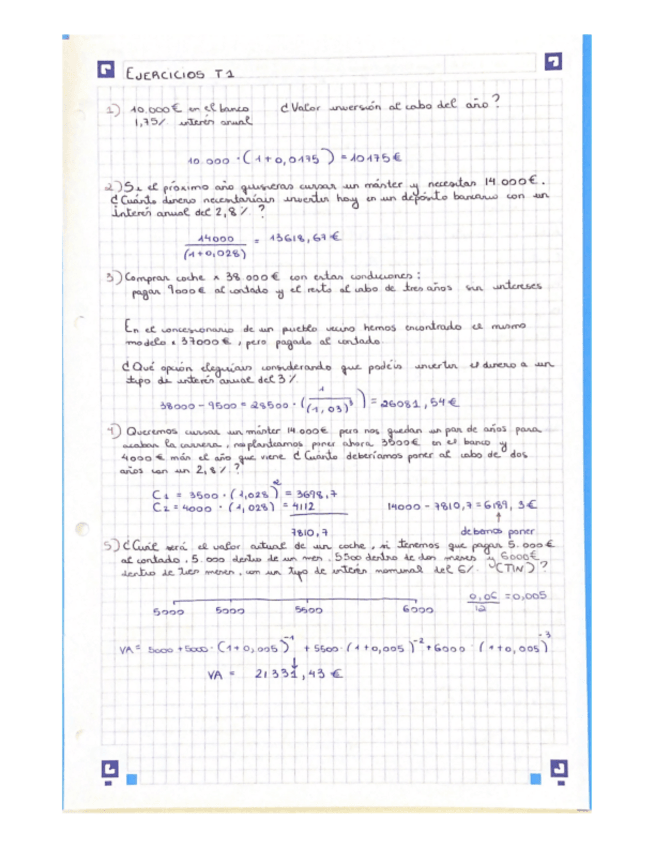 EJERCICIOS T1
1) 10.000€ en el banco ¿Valor inversión al cabo del año?
1,75% interés anual
10.000 · (1+0,0175) = 10175€
2) Si el próximo año quisieras cursar un máster y necesitan 14.000€.
¿Cuánto dinero necesitaríais invertir hoy en un depósito bancario con un
interés anual del 2,8%?
14000 / (1+0,028) = 13618,67€
3) Comprar coche x 38.000€ con estas condiciones:
pagar 9000€ al contado y el resto al cabo de tres años sin intereses
En el concesionario de un pueblo vecino hemos encontrado el mismo
modelo x 37000€, pero pagado al contado
¿Qué opción elegiríais considerando que podéis invertir el dinero a un
tipo de interés anual del 3%
38000 - 9500 = 28500 · (1 / (1,03)³) = 26081,54€
4) Queremos cursar un máster 14.000€ pero nos quedan un par de años para
acabar la carrera, nos planteamos poner ahora 3500€ en el banco y
4000€ más el año que viene ¿Cuánto deberíamos poner al cabo de dos
años con un 2,8%?
C1 = 3500 · (1,028)² = 3698,7
C2 = 4000 · (1,028) = 4112 14000 - 7810,7 = 6189,3€
7810,7 debemos poner
5) ¿Cuál será el valor actual de un coche, si tenemos que pagar 5.000€
al contado, 5.000 dentro de un mes, 5500 dentro de dos meses y 6000€
dentro de tres meses, con un tipo de interés nominal del 6%. (TIN)?
0,06 / 12 = 0,005
5000 5000 5500 6000
VA = 5000 + 5000 · (1+0,005)⁻¹ + 5500 · (1+0,005)⁻² + 6000 · (1+0,005)⁻³
VA = 21331,43€